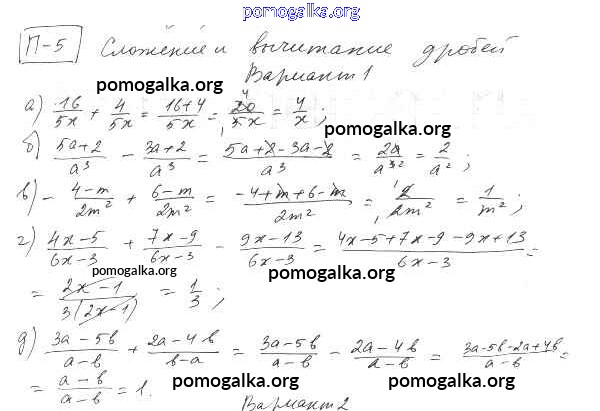 pomogalka.org
П-5 Сложение и вычитание дробей
Вариант 1
pomogalka.org pomogalka.org
а) 16/5x + 4/5x = (16+4)/5x = 20/5x = 4/x ;
pomogalka.org
б) (5a+2)/a³ − (3a+2)/a³ = (5a+2−3a−2)/a³ = 2a/a³ = 2/a² ;
pomogalka.org
в) − (4−m)/2m² + (6−m)/2m² = (−4+m+6−m)/2m² = 2/2m² = 1/m² ;
г) (4x−5)/(6x−3) + (7x−9)/(6x−3) − (9x−13)/(6x−3) = (4x−5+7x−9−9x+13)/(6x−3) =
pomogalka.org pomogalka.org
= (2x−1)/3(2x−1) = 1/3 ;
pomogalka.org
д) (3a−5b)/(a−b) + (2a−4b)/(b−a) = (3a−5b)/(a−b) − (2a−4b)/(a−b) = (3a−5b−2a+4b)/(a−b) =
= (a−b)/(a−b) = 1.
pomogalka.org pomogalka.org
Вариант 2